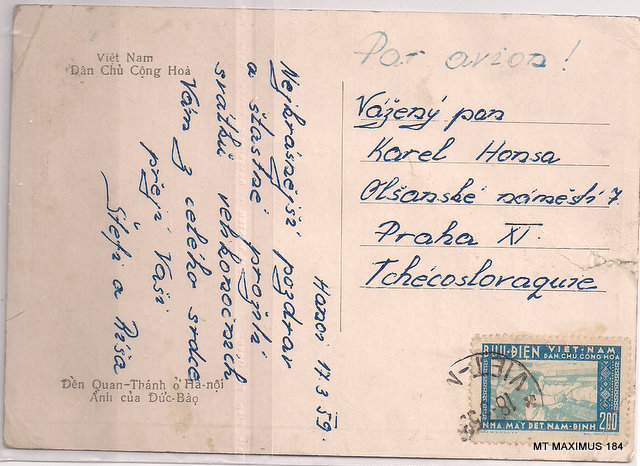 Việt Nam
Dân Chủ Cộng Hoà
Par avion!
Hanoi 17.3.59.
Nejkrásnější pozdrav
a šťastné prožití
svátků velikonočních
Vám z celého srdce
přejí Vaši
Štefi a Riša
Vážený pan
Karel Honsa
Olšanské náměstí 7
Praha XI.
Tchécoslovaquie
BƯU-ĐIỆN VIỆT-NAM
DÂN CHỦ CỘNG HÒA
NHÀ MÁY DỆT NAM-ĐỊNH
200
VIET-
Đền Quan-Thánh ở Hà-nội
Ảnh của Đức-Bảo
MT MAXIMUS 184